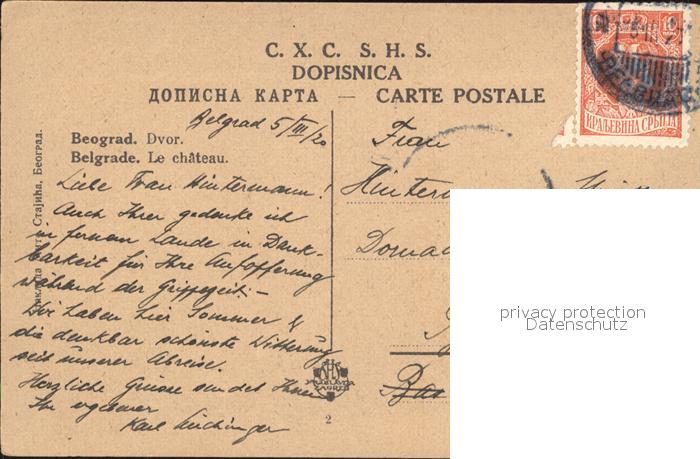 С. Х. С. S. H. S.
DOPISNICA
ДОПИСНА КАРТА — CARTE POSTALE
10
КРАЉЕВИНА СРБИЈА
Belgrad 5/III/20
Beograd. Dvor.
Belgrade. Le château.
Стајића, Београд.
Liebe Frau Hintermann!
Auch Ihrer gedenke ich
in fernem Lande in Dank-
barkeit für Ihre Aufopferung
während der Grippezeit.-
Wir haben hier Sommer &
die denkbar schönste Witterung
seit unserer Abreise.
Herzliche Grüsse sendet Ihnen
Ihr ergebener
Karl
JUGOSLAVIJA
ZAGREB
2
Frau
Hinterm
Dornac
Bas
privacy protection
Datenschutz